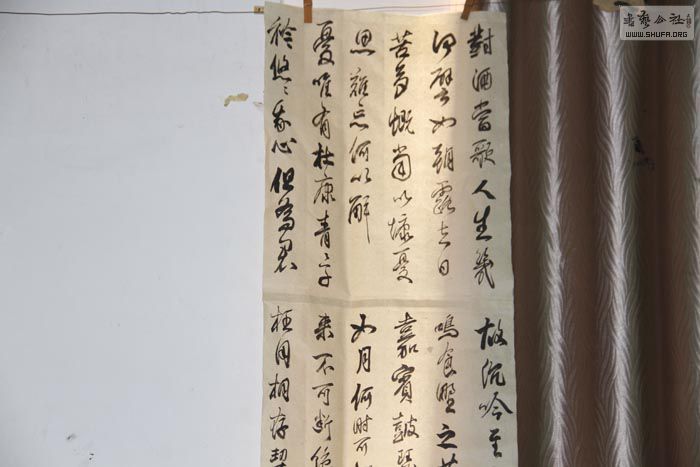 對酒當歌人生幾
何譬如朝露去日
苦多慨當以慷憂
思難忘何以解
憂唯有杜康青子
衿悠〻我心但為君
故沉吟至
鳴食野之
嘉賓鼓瑟
如月何時可
來不可斷
枉用相存契
書藝公社
WWW.SHUFA.ORG